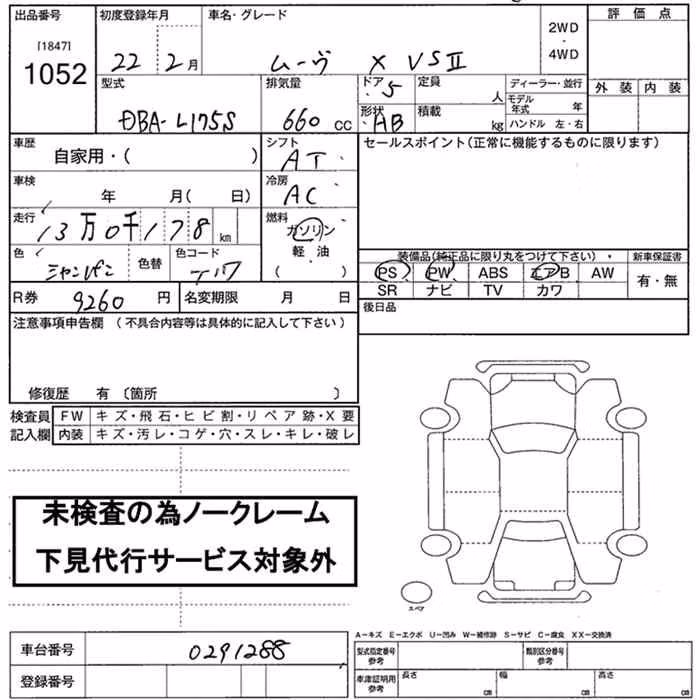 出品番号 初度登録年月 車名・グレード 評価点
[1847]
1052 22年 2月 ムーヴ X VSⅡ 2WD ・ 4WD
型式 排気量 ドア 5 定員 人 ディーラー・並行 外装 内装
DBA-L175S 660 cc 形状 AB 積載 kg モデル年式 年
ハンドル 左・右
車歴 自家用・( ) シフト AT セールスポイント(正常に機能するものに限ります)
車検 年 月( 日) 冷房 AC
走行 13万0千178 km 燃料 ガソリン
軽・油
( )
色 シャンパン 色替 色コード 装備品(純正品に限り丸をつけて下さい) 新車保証書
PS PW ABS エアB AW 有・無
SR ナビ TV カワ
R券 9260 円 名変期限 月 日 後日品
注意事項申告欄 (不具合内容等は具体的に記入して下さい)
修復歴 有 〔箇所 〕
検査員 FW キズ・飛石・ヒビ割・リペア跡・X要
記入欄 内装 キズ・汚レ・コゲ・穴・スレ・キレ・破レ
未検査の為ノークレーム
下見代行サービス対象外
スペア
A-キズ E-エクボ U-凹み W-補修跡 S-サビ C-腐食 XX-交換済
車台番号 0291288 型式指定番号 参考 類別区分番号 参考
登録番号 車庫証明用 参考 長さ cm 幅 cm 高さ cm